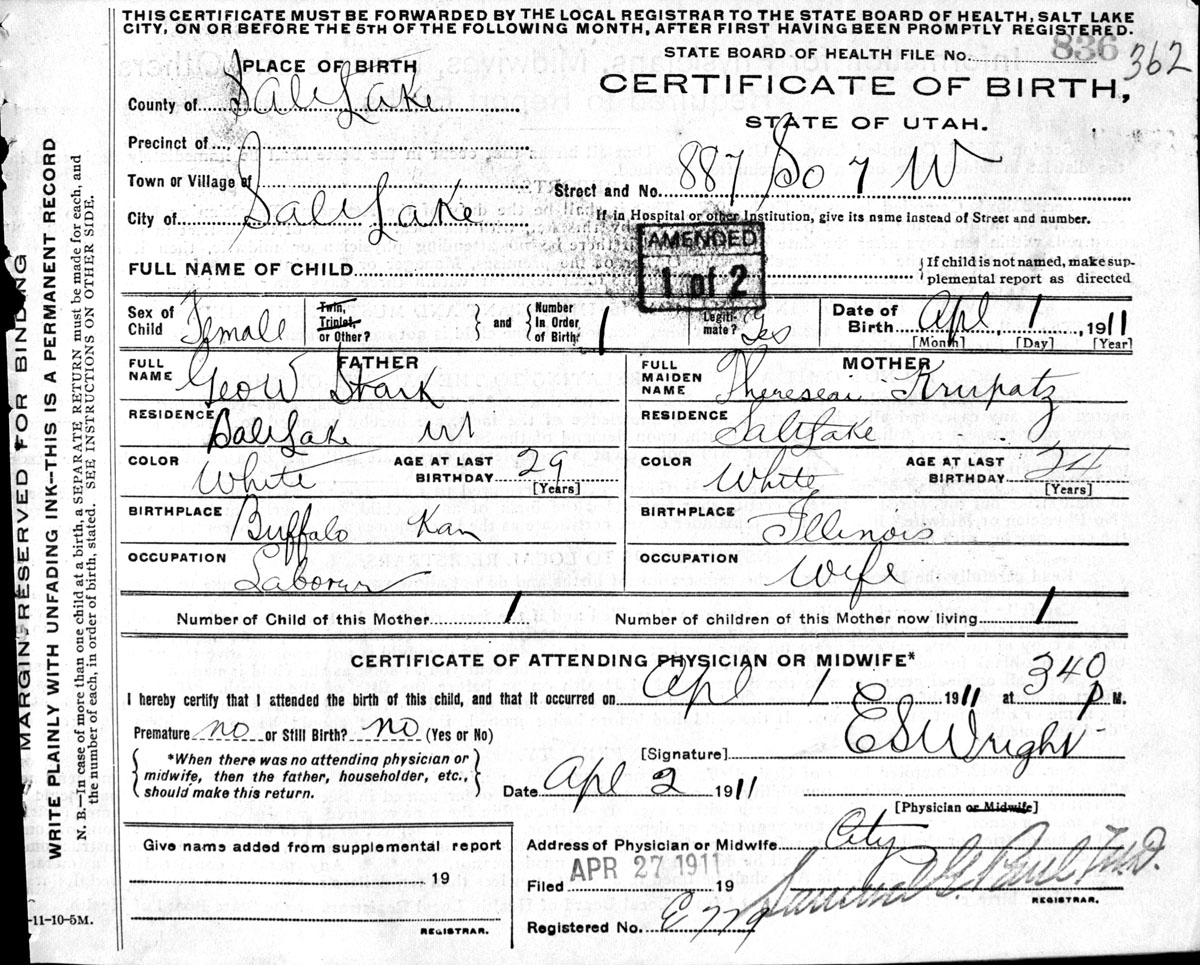 THIS CERTIFICATE MUST BE FORWARDED BY THE LOCAL REGISTRAR TO THE STATE BOARD OF HEALTH, SALT LAKE
CITY, ON OR BEFORE THE 5TH OF THE FOLLOWING MONTH, AFTER FIRST HAVING BEEN PROMPTLY REGISTERED.
STATE BOARD OF HEALTH FILE No. 836 362
PLACE OF BIRTH
CERTIFICATE OF BIRTH,
County of Salt Lake
STATE OF UTAH.
Precinct of
Town or Village of
Street and No. 887 So 7 W
City of Salt Lake
If in Hospital or other Institution, give its name instead of Street and number.
AMENDED
1 of 2
FULL NAME OF CHILD
{If child is not named, make sup-
plemental report as directed
Sex of Child Female
Twin, Triplet, or Other?
and
Number In Order of Birth: 1
Legiti-mate? Yes
Date of Birth Apl 1 1911
[Month] [Day] [Year]
FATHER
FULL NAME Geo W Stark
MOTHER
FULL MAIDEN NAME Krupatz
RESIDENCE Salt Lake Ut
RESIDENCE Salt Lake
COLOR White
AGE AT LAST BIRTHDAY 29
[Years]
COLOR White
AGE AT LAST BIRTHDAY 24
[Years]
BIRTHPLACE Buffalo Kan
BIRTHPLACE Illinois
OCCUPATION Laborer
OCCUPATION Wife
Number of Child of this Mother 1
Number of children of this Mother now living 1
CERTIFICATE OF ATTENDING PHYSICIAN OR MIDWIFE*
I hereby certify that I attended the birth of this child, and that it occurred on Apl 1 1911 at 340 P M.
Premature no or Still Birth? no (Yes or No)
[Signature] E S Wright
*When there was no attending physician or
midwife, then the father, householder, etc.,
should make this return.
Date Apl 2 1911
[Physician or Midwife]
Give name added from supplemental report
19
REGISTRAR.
Address of Physician or Midwife City
Filed APR 27 1911 19
REGISTRAR.
Registered No.
-11-10-5M.
MARGIN RESERVED FOR BINDING
WRITE PLAINLY WITH UNFADING INK—THIS IS A PERMANENT RECORD
N. B.—In case of more than one child at a birth, a SEPARATE RETURN must be made for each, and
the number of each, in order of birth, stated. SEE INSTRUCTIONS ON OTHER SIDE.